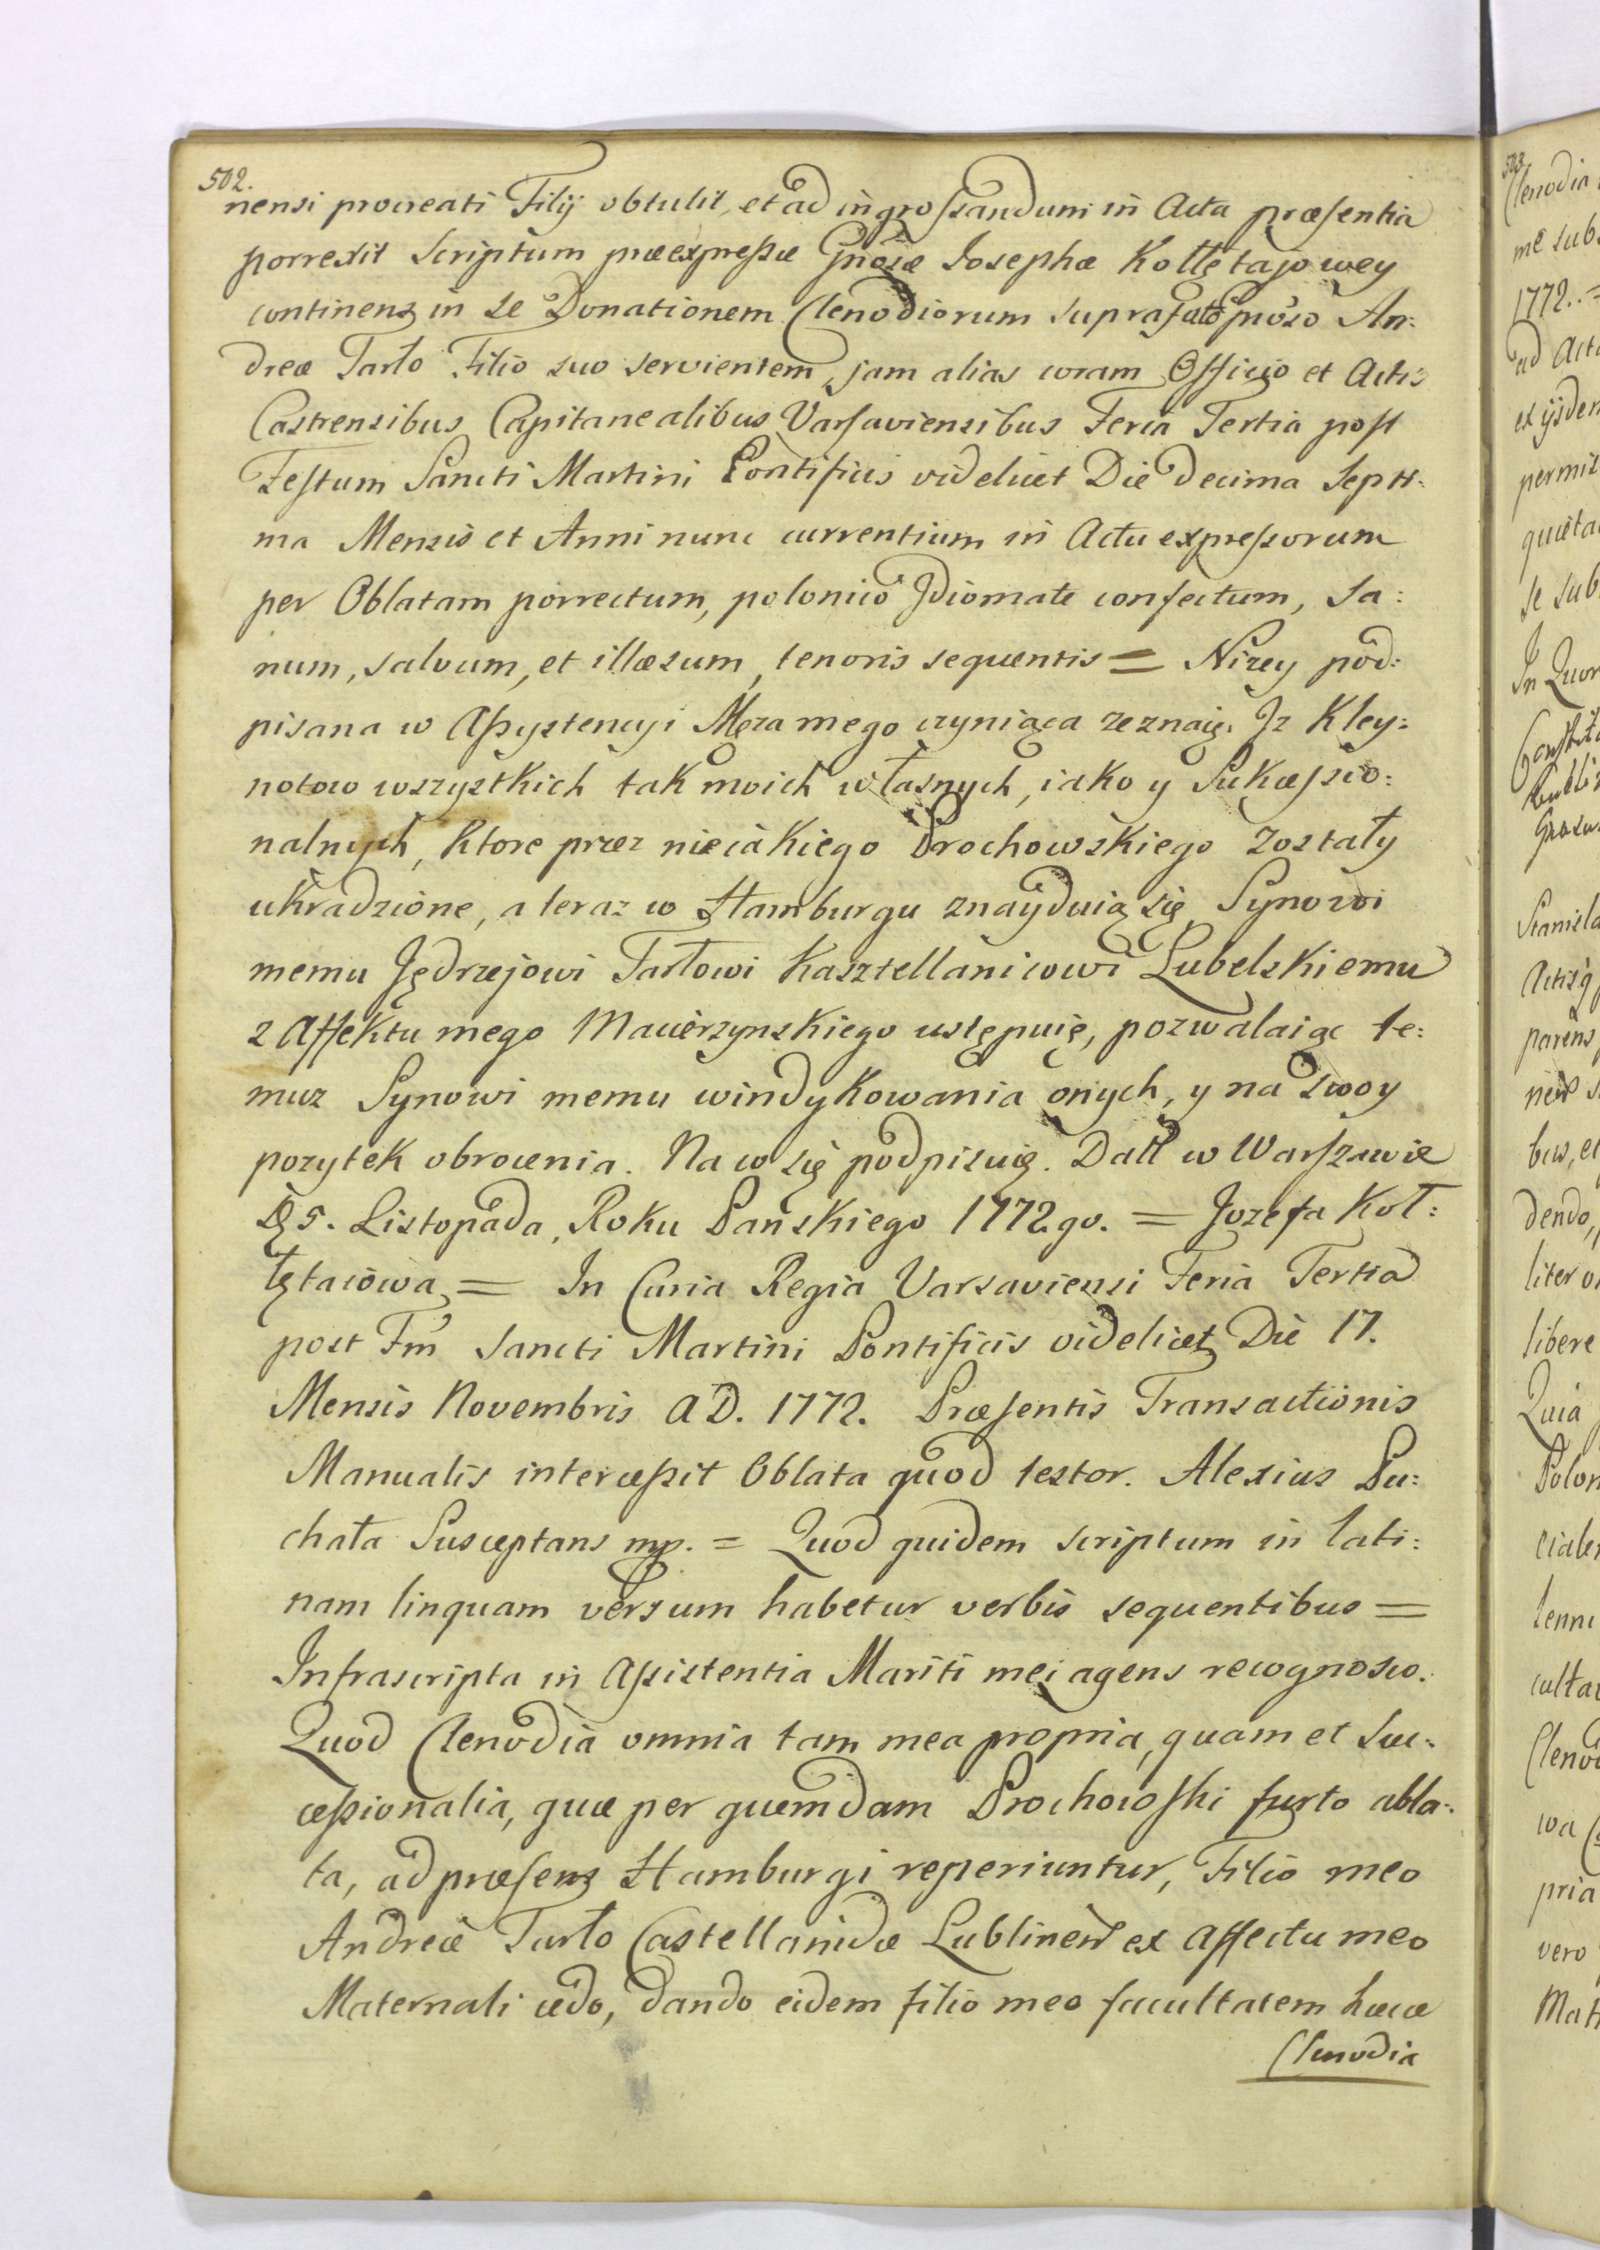 502.
nensi procreati Filij obtulit, et ad ingrossandum in Acta præsentia
porrexit Scriptum præexpressæ Gnosæ Josephæ Kołłętajowey
continens in se Donationem Clenodiorum suprafato Gnoso An:
dreæ Tarło Filio suo servientem, jam alias coram Officio et Actis
Castrensibus Capitanealibus Varsaviensibus Feria Tertia post
Festum Sancti Martini Pontificis videlicet Die decima Septi:
ma Mensis et Anni nunc currentium in Actu expressorum
per Oblatam porrectum, polonico Idiomate confectum, sa:
num, salvum, et illæsum, tenoris sequentis = Nizey pod:
pisana w Assystencyi Męza mego czyniąca zeznaię. Iz Kley:
notow wszystkich tak moich własnych, iako y Sukcessio:
nalnych, ktore przez nieiakiego Prochowskiego zostały
ukradzione, a teraz w Hamburgu znayduią się, Synowi
memu Jędrzejowi Tarłowi Kasztellanicowi Lubelskiemu
z Affektu mego Macierzynskiego ustępuię, pozwalaiąc te:
muz Synowi memu windykowania onych, y na swoy
pozytek obrocenia. Na co się podpisuię. Datt w Warszawie
D 5. Listopada, Roku Pańskiego 1772.go. = Jozefa Koł:
łętaiowa = In Curia Regia Varsaviensi Feria Tertia
post Fm Sancti Martini Pontificis videlicet Die 17.
Mensis Novembris AD. 1772. Præsentis Transactionis
Manualis intercessit Oblata quod testor. Alexius Pu:
chała Susceptans mp. = Quod quidem scriptum in lati:
nam linguam versum habetur verbis sequentibus =
Infrascripta in Assistentia Mariti mei agens recognosco.
Quod Clenodia omnia tam mea propria, quam et Suc:
cessionalia, quæ per quemdam Prochowski furto abla:
ta, ad præsens Hamburgi reperiuntur, Filio meo
Andreæ Tarło Castellanidæ Lublinen ex affectu meo
Maternali cedo, dando eidem filio meo facultatem hæcce
Clenodia
503.
Clenodia
me sub
1772. =
ad Acta
ex ijsdem
permis
quieta
se sub
In Quor
Stanisla
Actisq
parens
nen s
bus, et
dendo,
liter
libere
Quia
Polon
cialen
lenni
culta
Clenod
wa
pria
vero
Mat